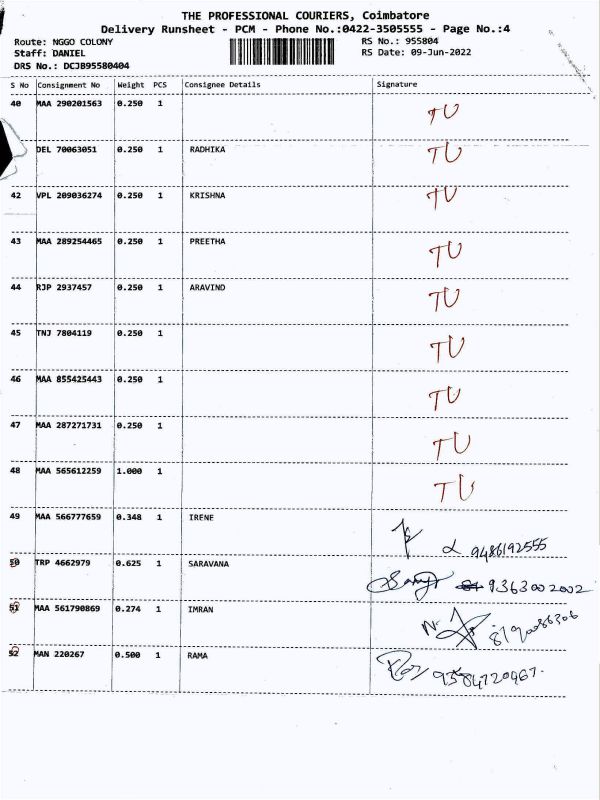 THE PROFESSIONAL COURIERS, Coimbatore
Delivery Runsheet - PCM - Phone No.:0422-3505555 - Page No.:4
Route: NGGO COLONY RS No.: 955804
Staff: DANIEL RS Date: 09-Jun-2022
DRS No.: DCJB95580404
S No Consignment No Weight PCS Consignee Details Signature
40 MAA 290201563 0.250 1 TU
DEL 70063051 0.250 1 RADHIKA TU
42 VPL 209036274 0.250 1 KRISHNA TU
43 MAA 289254465 0.250 1 PREETHA TU
44 RJP 2937457 0.250 1 ARAVIND TU
45 TNJ 7804119 0.250 1 TU
46 MAA 855425443 0.250 1 TU
47 MAA 287271731 0.250 1 TU
48 MAA 565612259 1.000 1 TU
49 MAA 566777659 0.348 1 IRENE 9486192555
50 TRP 4662979 0.625 1 SARAVANA 9363002002
51 MAA 561790869 0.274 1 IMRAN
52 MAN 220267 0.500 1 RAMA 9584720967.